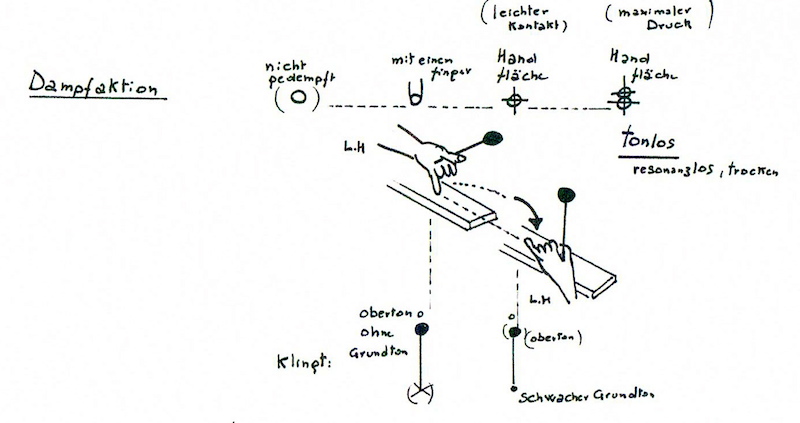 (leichter
Kontakt)
(maximaler
Druck)
nicht
pedempft
mit einen
finger
Hand
fläche
Hand
fläche
Dampfaktion
tonlos
resonanzlos, trocken
L.H
L.H
oberton
ohne
Grundton
(oberton)
Klingt:
Schwacher Grundton